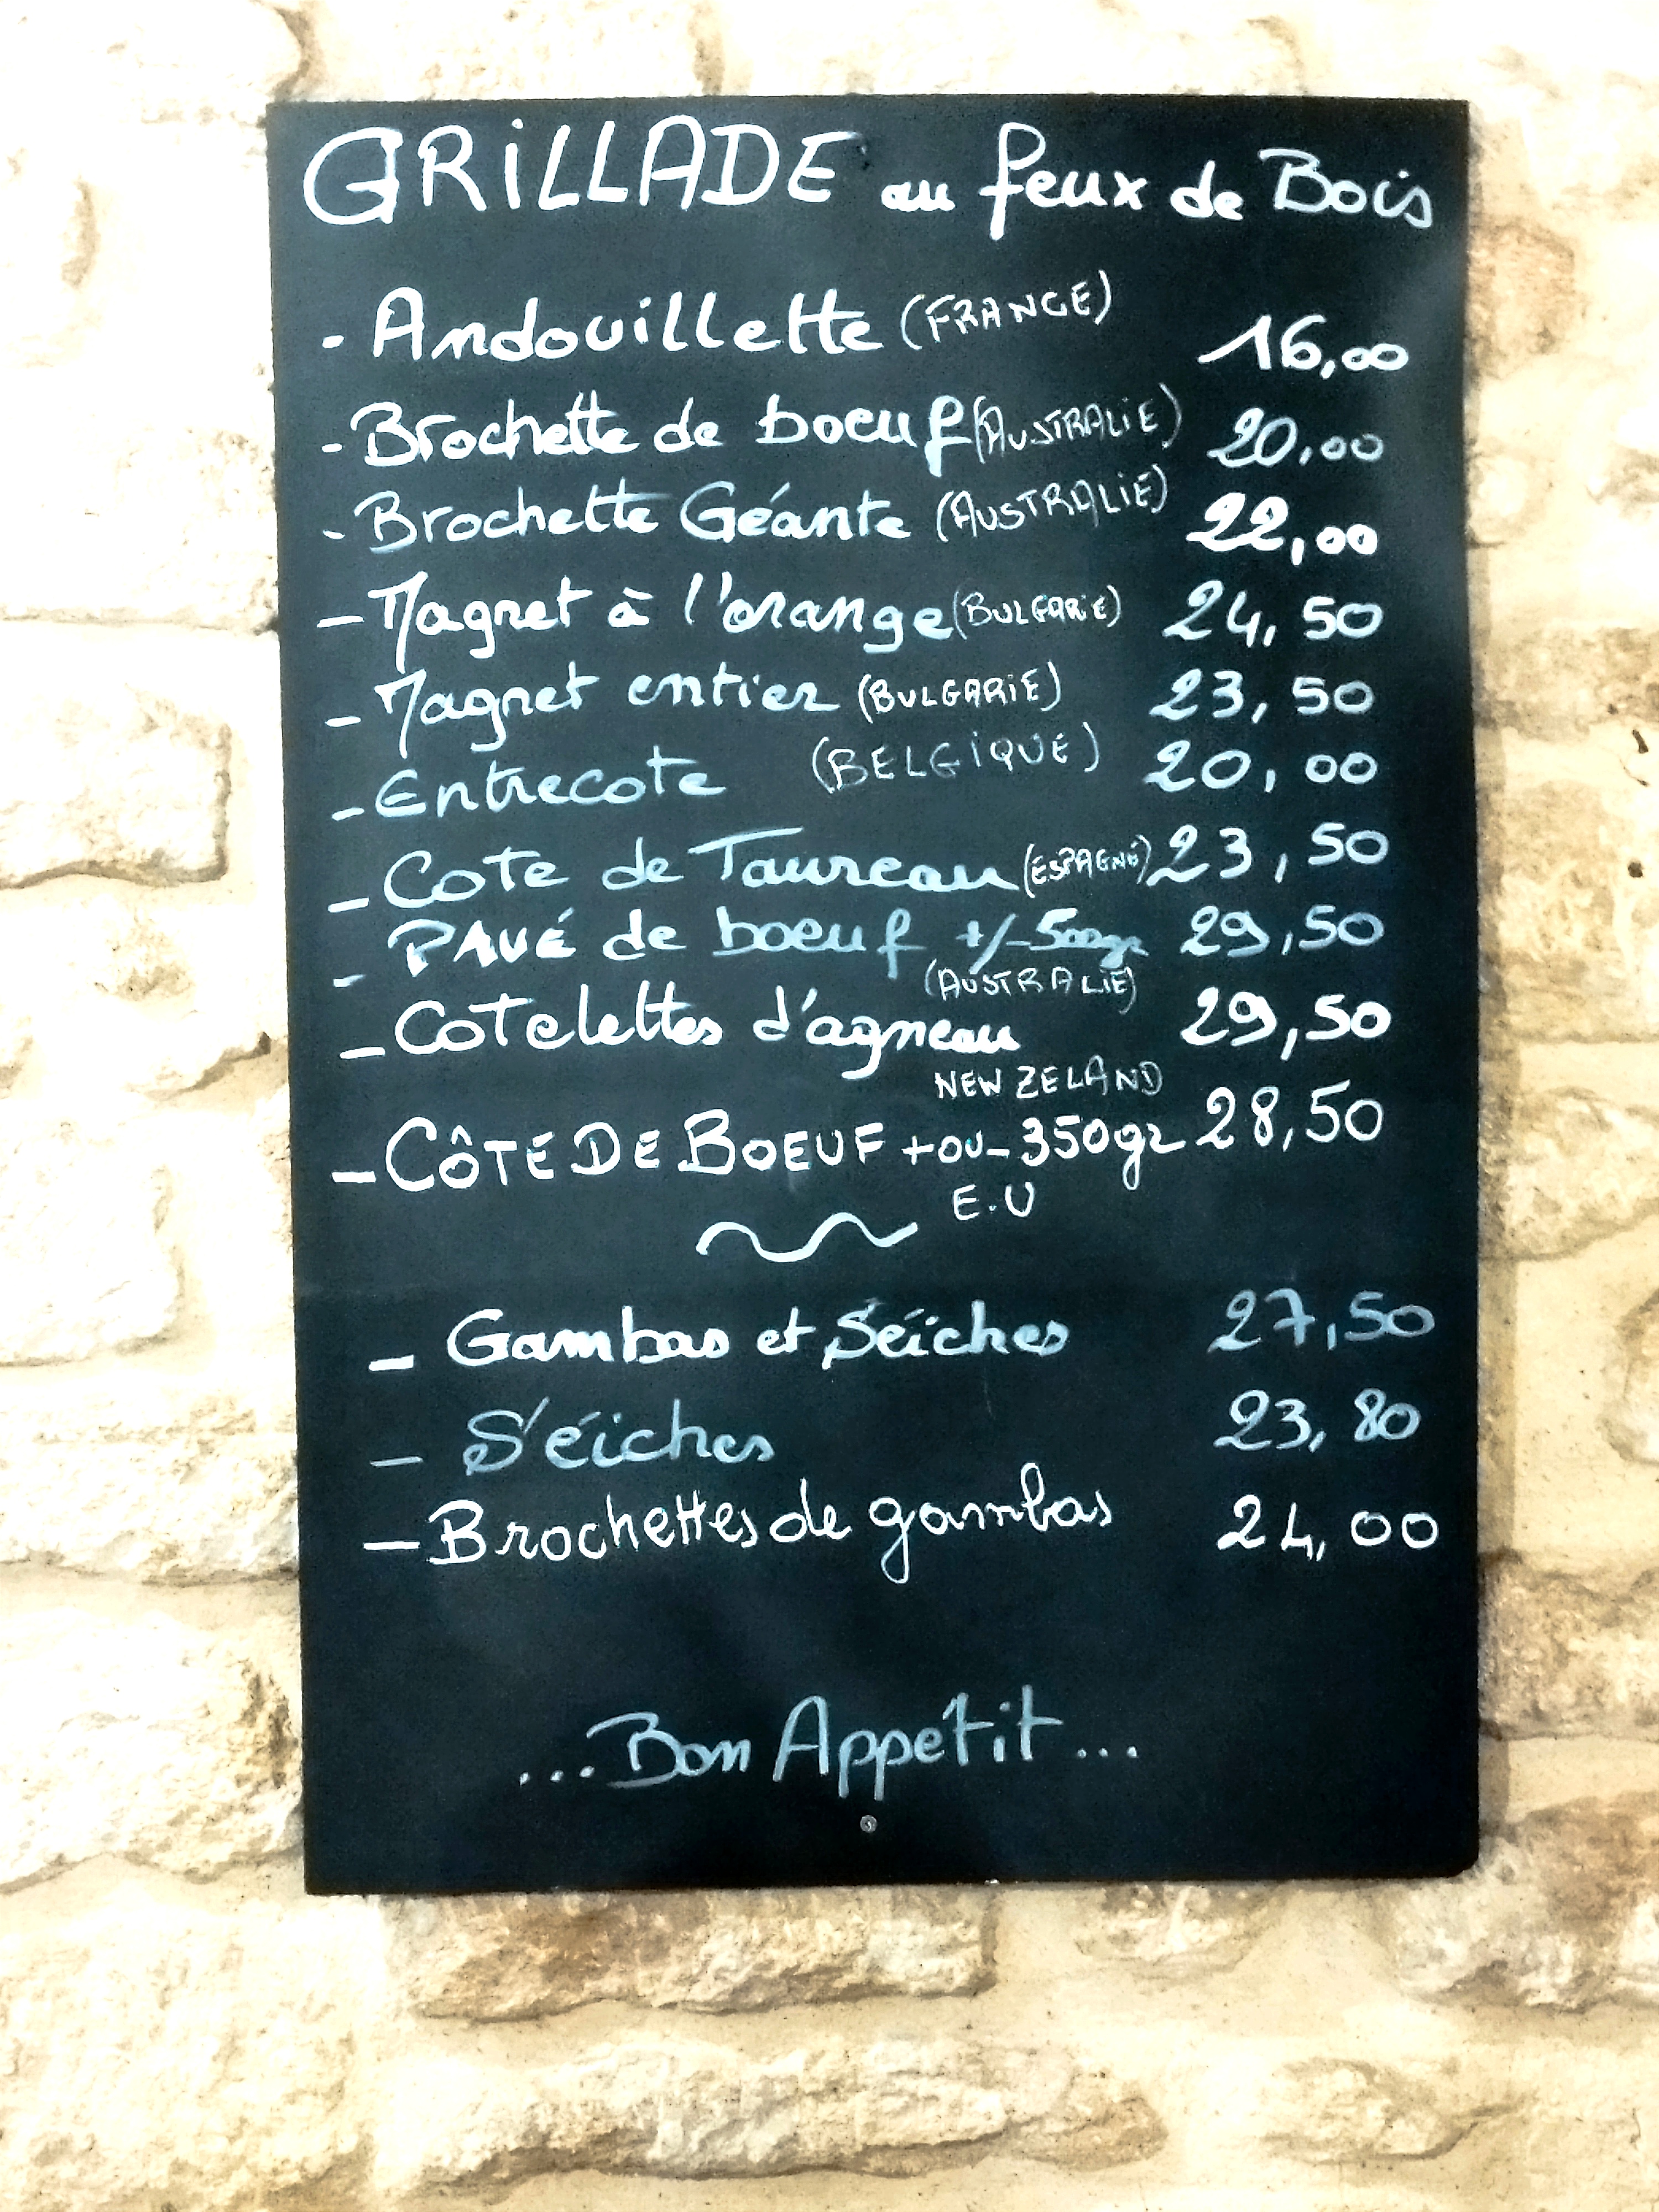 GRILLADE au feux de Bois
- Andouillette (FRANCE) 16,00
- Brochette de boeuf (AUSTRALIE) 20,00
- Brochette Géante (AUSTRALIE) 22,00
- Magret à l'orange (BULGARIE) 24,50
- Magret entier (BULGARIE) 23,50
- Entrecote (BELGIQUE) 20,00
- Cote de Taureau (ESPAGNE) 23,50
- PAVÉ de boeuf +/- 500gr 29,50
(AUSTRALIE)
- Cotelettes d'agneau 29,50
NEW ZELAND
- CÔTE DE BOEUF + OU - 350gr 28,50
E.U
- Gambas et Séiches 27,50
- Séiches 23,80
- Brochettes de gambas 24,00
...Bon Appetit...